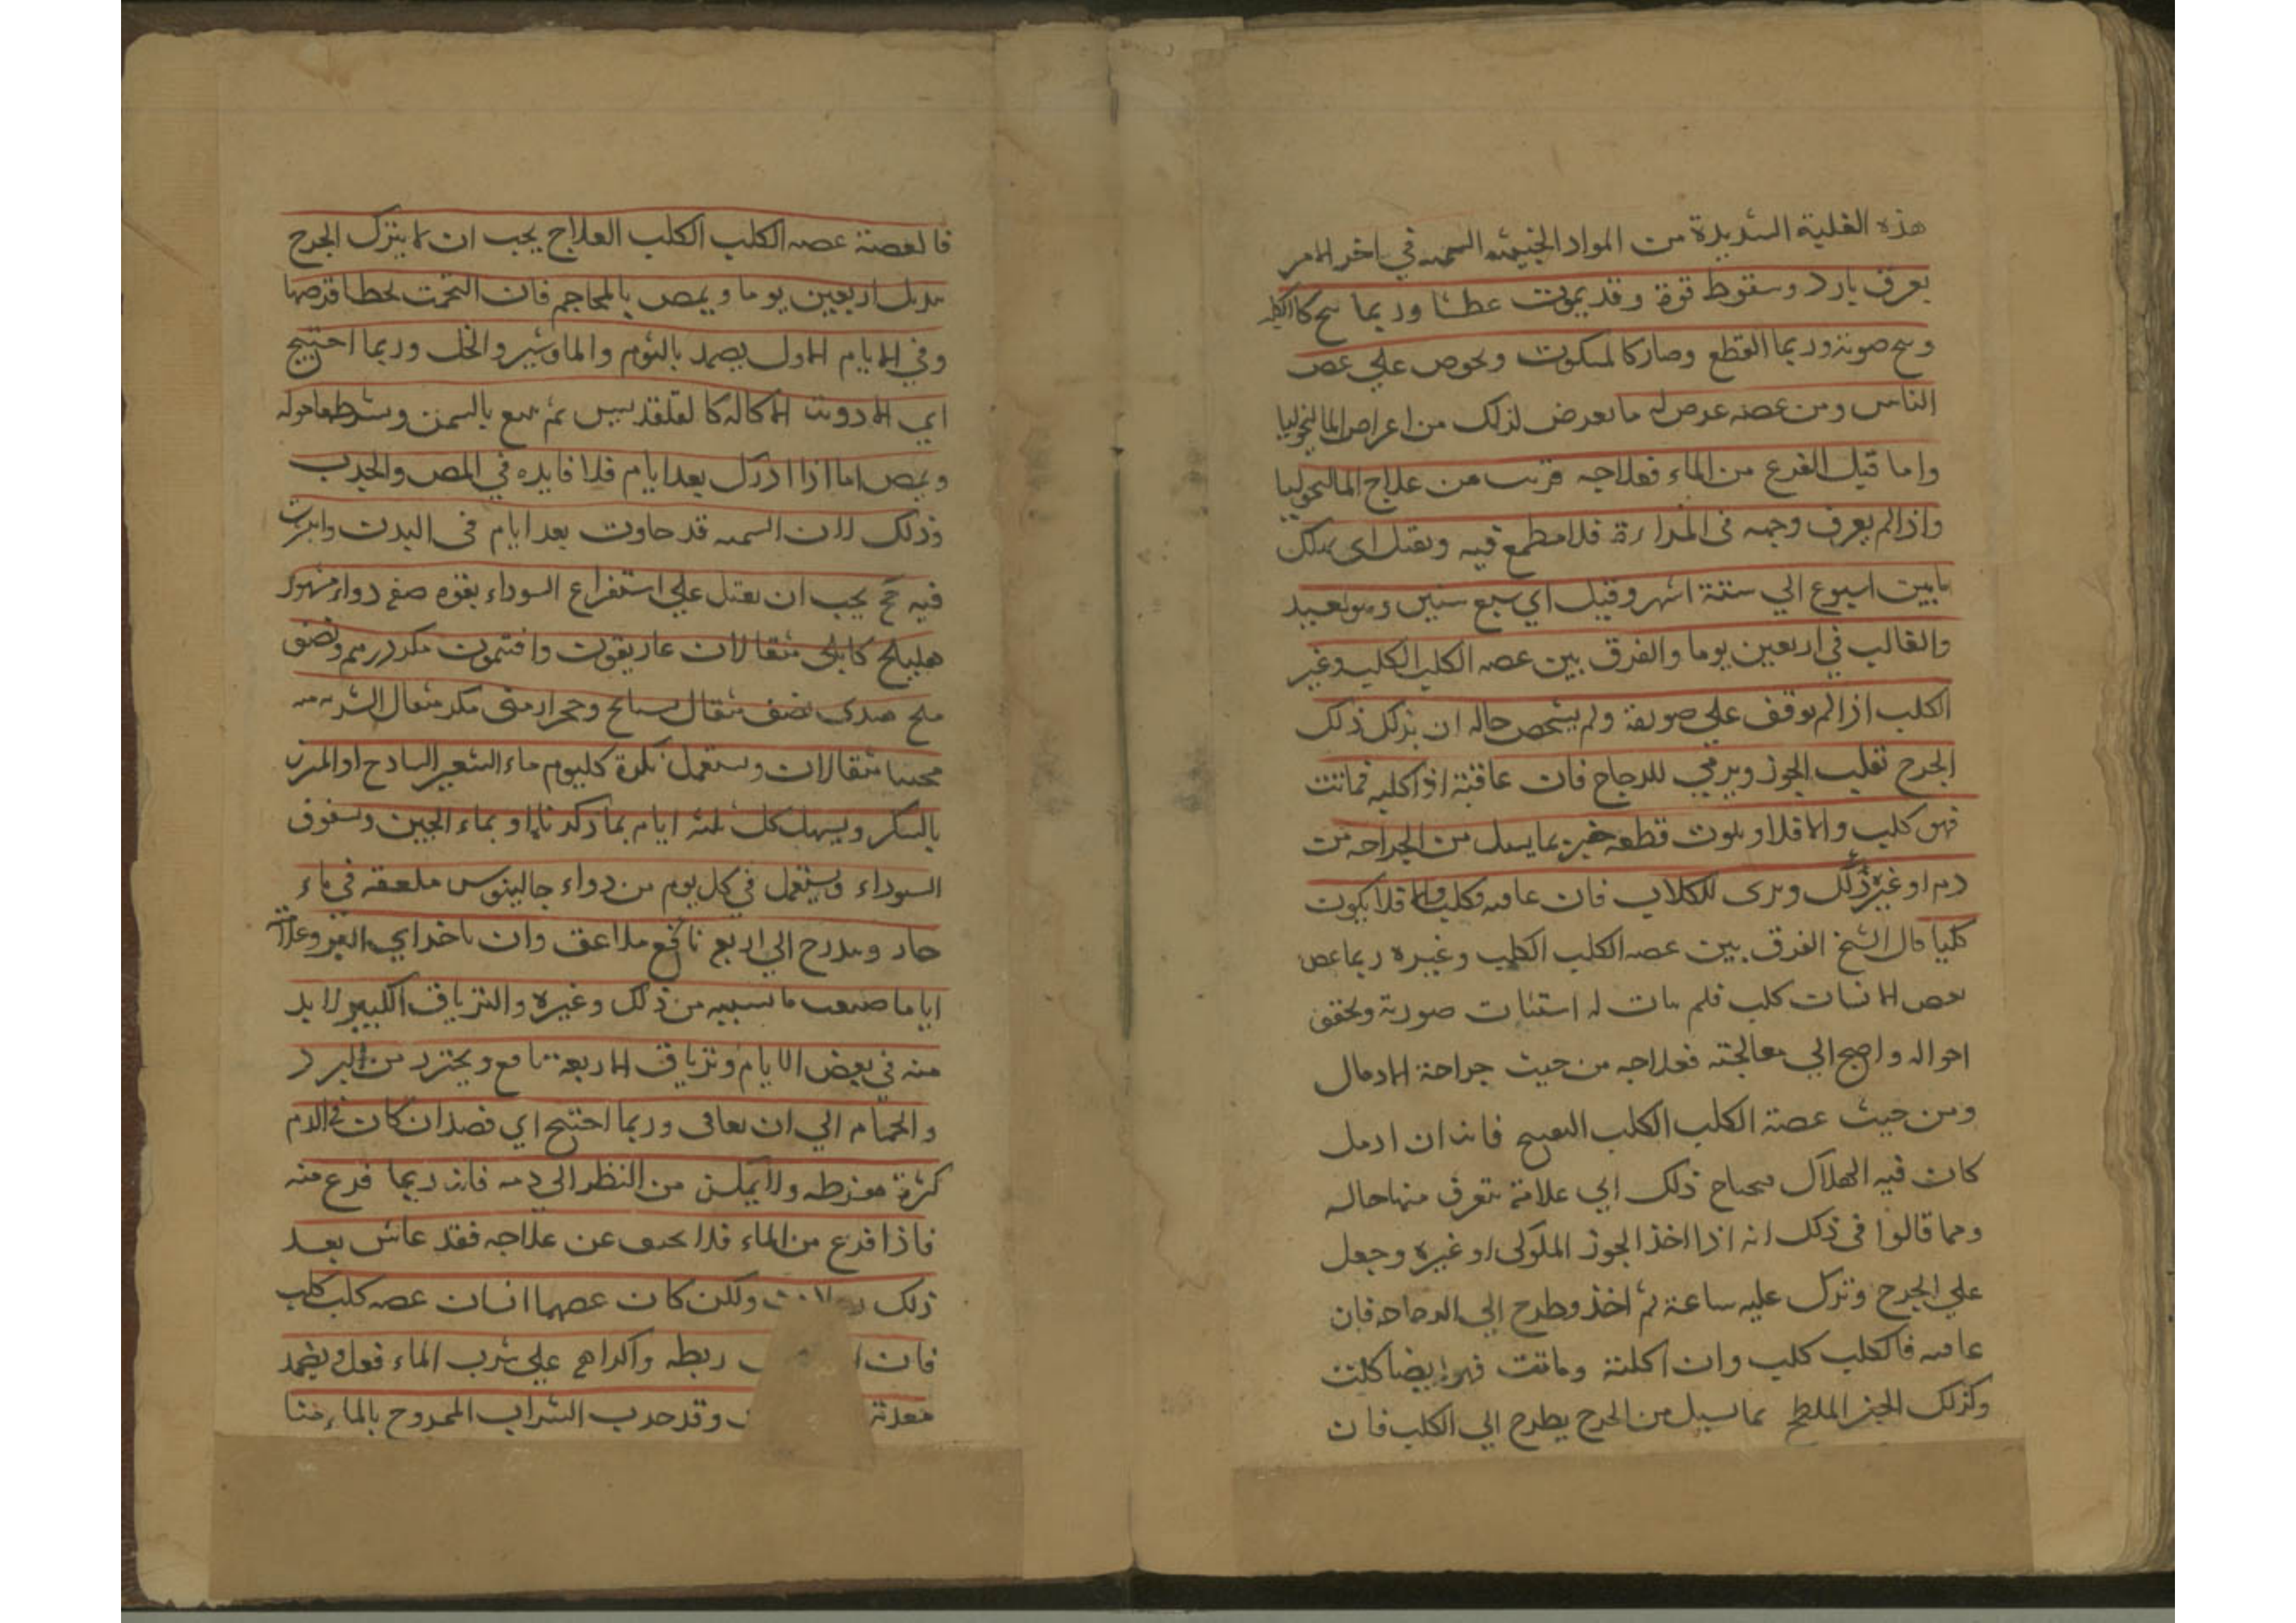 هذه الغلبة الشديدة من المواد الخبيثة السمية في اخر الامر
بعرق بارد وسقوط قوة وقد يموت عطشا وربما بح كالكلب
وبح صوته وربما انقطع وصار كالمسكوت ويحرص علي عض
الناس ومن عضه عرض له ما يعرض لذلك من اعراض المالنخوليا
واما قبل الفزع من الماء فعلاجه قريب من علاج المالنخوليا
واذا لم يعرف وجهه في المراءة فلا مطمع فيه ويقتل اي
ما بين اسبوع الي ستة اشهر وقيل اي سبع سنين وهو بعيد
والغالب في اربعين يوما والفرق بين عضه الكلب الكلب وغير
الكلب اذا لم يوقف علي صورته ولم يشخص حاله ان يترك ذلك
الجرح الجوز ويرمي للدجاج فان عافته اذ اكلته فماتت
فهو كلب والا فلا او يلوث قطعه خبز بما يسيل من الجراحه من
دم او غير ذلك ويرمى للكلاب فان عافته فكلب والا فلا يكون
كلبا قال الشيخ الفرق بين عضه الكلب الكلب وغيره ربما عض
بعض الانسان كلب فلم يتات له استثبات صورته وتحقق
احواله واحتيج الي معالجته فعلاجه من حيث جراحة الادمال
ومن حيث عضة الكلب الكلب التقييح فانه ان ادمل
كان فيه الهلاك فيحتاج ذلك الي علامة يتعرف منها حاله
ومما قالوا في ذلك انه اذا اخذ الجوز الملوكى او غيره وجعل
علي الجرح وترك عليه ساعة ثم اخذ وطرح الي الدجاجه فان
عافته فالكلب كلب وان اكلته وماتت فهو ايضا كلب
وكذلك الخبز الملطخ بما يسيل من الجرح يطرح الي الكلب فان
فالعضة عضه الكلب الكلب العلاج يجب ان لا يترك الجرح
يدمل اربعين يوما ويمص بالمحاجم فان التحمت لخطا
وفي الايام الاول يضمد بالثوم والجاوشير والخل وربما احتيج
اي الادوية الاكاله كالقلقديس ثم يتبع بالسمن ويشرط ما حوله
ويمص اما اذا ادرك بعد ايام فلا فايده في المص والجذب
وذلك لان السميه قد جاوزت بعد ايام في البدن
فيه ح يجب ان يقبل علي استفراغ السوداء بقوه صفة دواء مشهور
هليلج كابلى مثقالان غاريقون وافتيمون مكد درهم ونصف
ملح هندى نصف مثقال بسفايج وحجر ارمنى مكد مثقال الشربه منه
محببا مثقالان ويستعمل بكرة كل يوم ماء الشعير الساذج او المبزر
بالسكر ويسهل كل ثلثه ايام بما ذكرنا او بماء الجبن وسفوف
السوداء ويستعمل في كل يوم من دواء جالينوس ملعقه في ماء
حار ويدرج الي اربع ملاعق وان تاخر اي العرض وعلاجه
اياما ضوعف ما نسقيه من ذلك وغيره والترياق الكبير لا بد
منه في بعض الايام وترياق الاربعة نافع ويحترز من البرد
والحمام الي ان يعافى وربما احتيج اي فصد ان كان في الدم
كثرة مفرطه ولا يمكن من النظر الي دمه فانه ربما فزع منه
فاذا فزع من الماء فلا يخف عن علاجه فقد عاش بعد
ذلك ولكن كان عضهما انسان عضه كلب كلب
فان ربطه واكراهه علي شرب الماء فعل ويضمد
معدته وقد جرب الشراب الممزوج بالماء